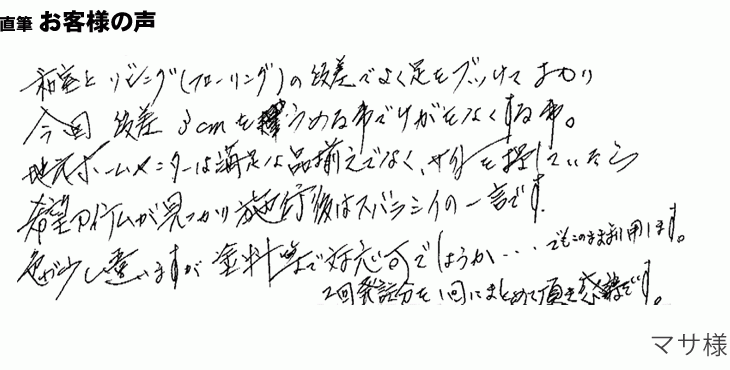 直筆 お客様の声
和室とリビング(フローリング)の段差でよく足をブツけており
今回 段差3cmをうめる事でけがをなくする事。
地元ホームセンターは満足な品揃えでなく、サイトを探していたら
希望アイテムが見つかり施行後はスバラシイの一言です。
色が少し違いますが塗料等で対応可でしょうか・・・でもこのまま利用します。
2回発註分を1回にまとめて頂き感謝です。
マサ様